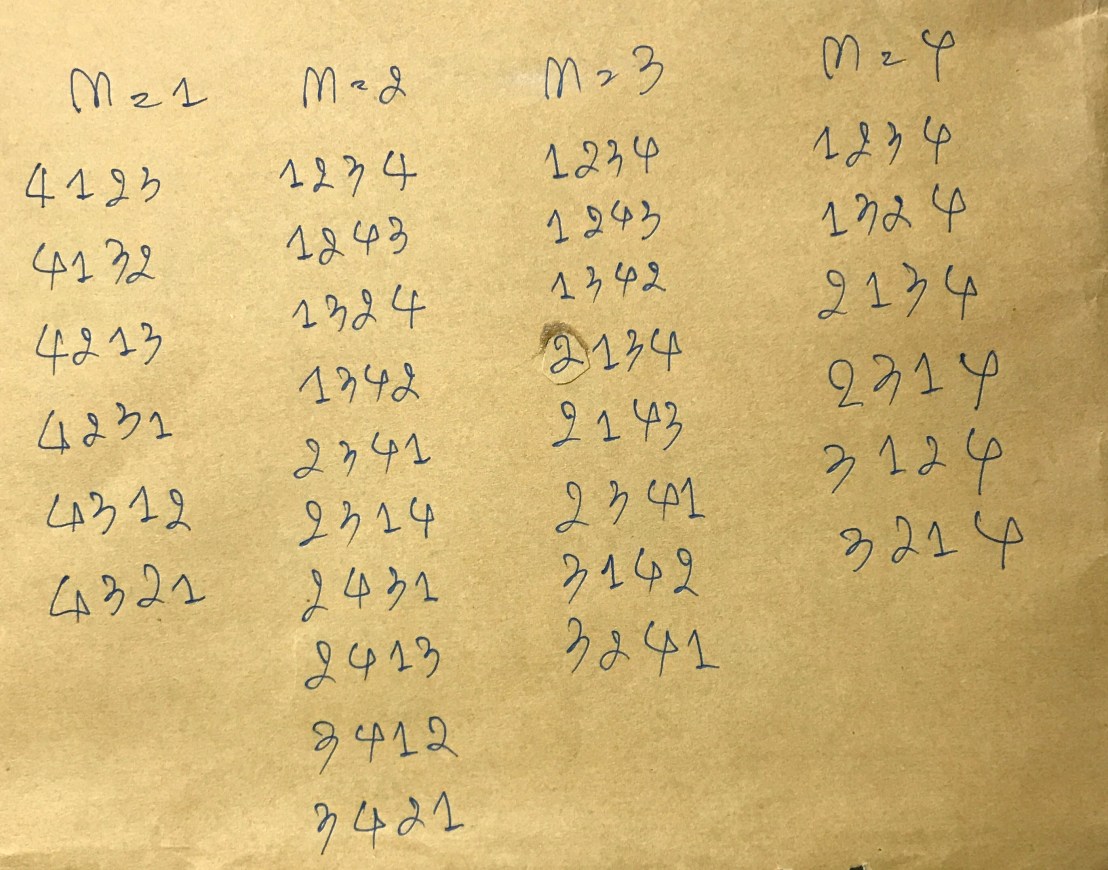 m=1 m=2 m=3 m=4
4123 1234 1234 1234
4132 1243 1243 1324
4213 1324 1342 2134
4231 1342 2134 2314
4312 2341 2143 3124
4321 2314 2341 3214
2431 3142
2413 3241
3412
3421